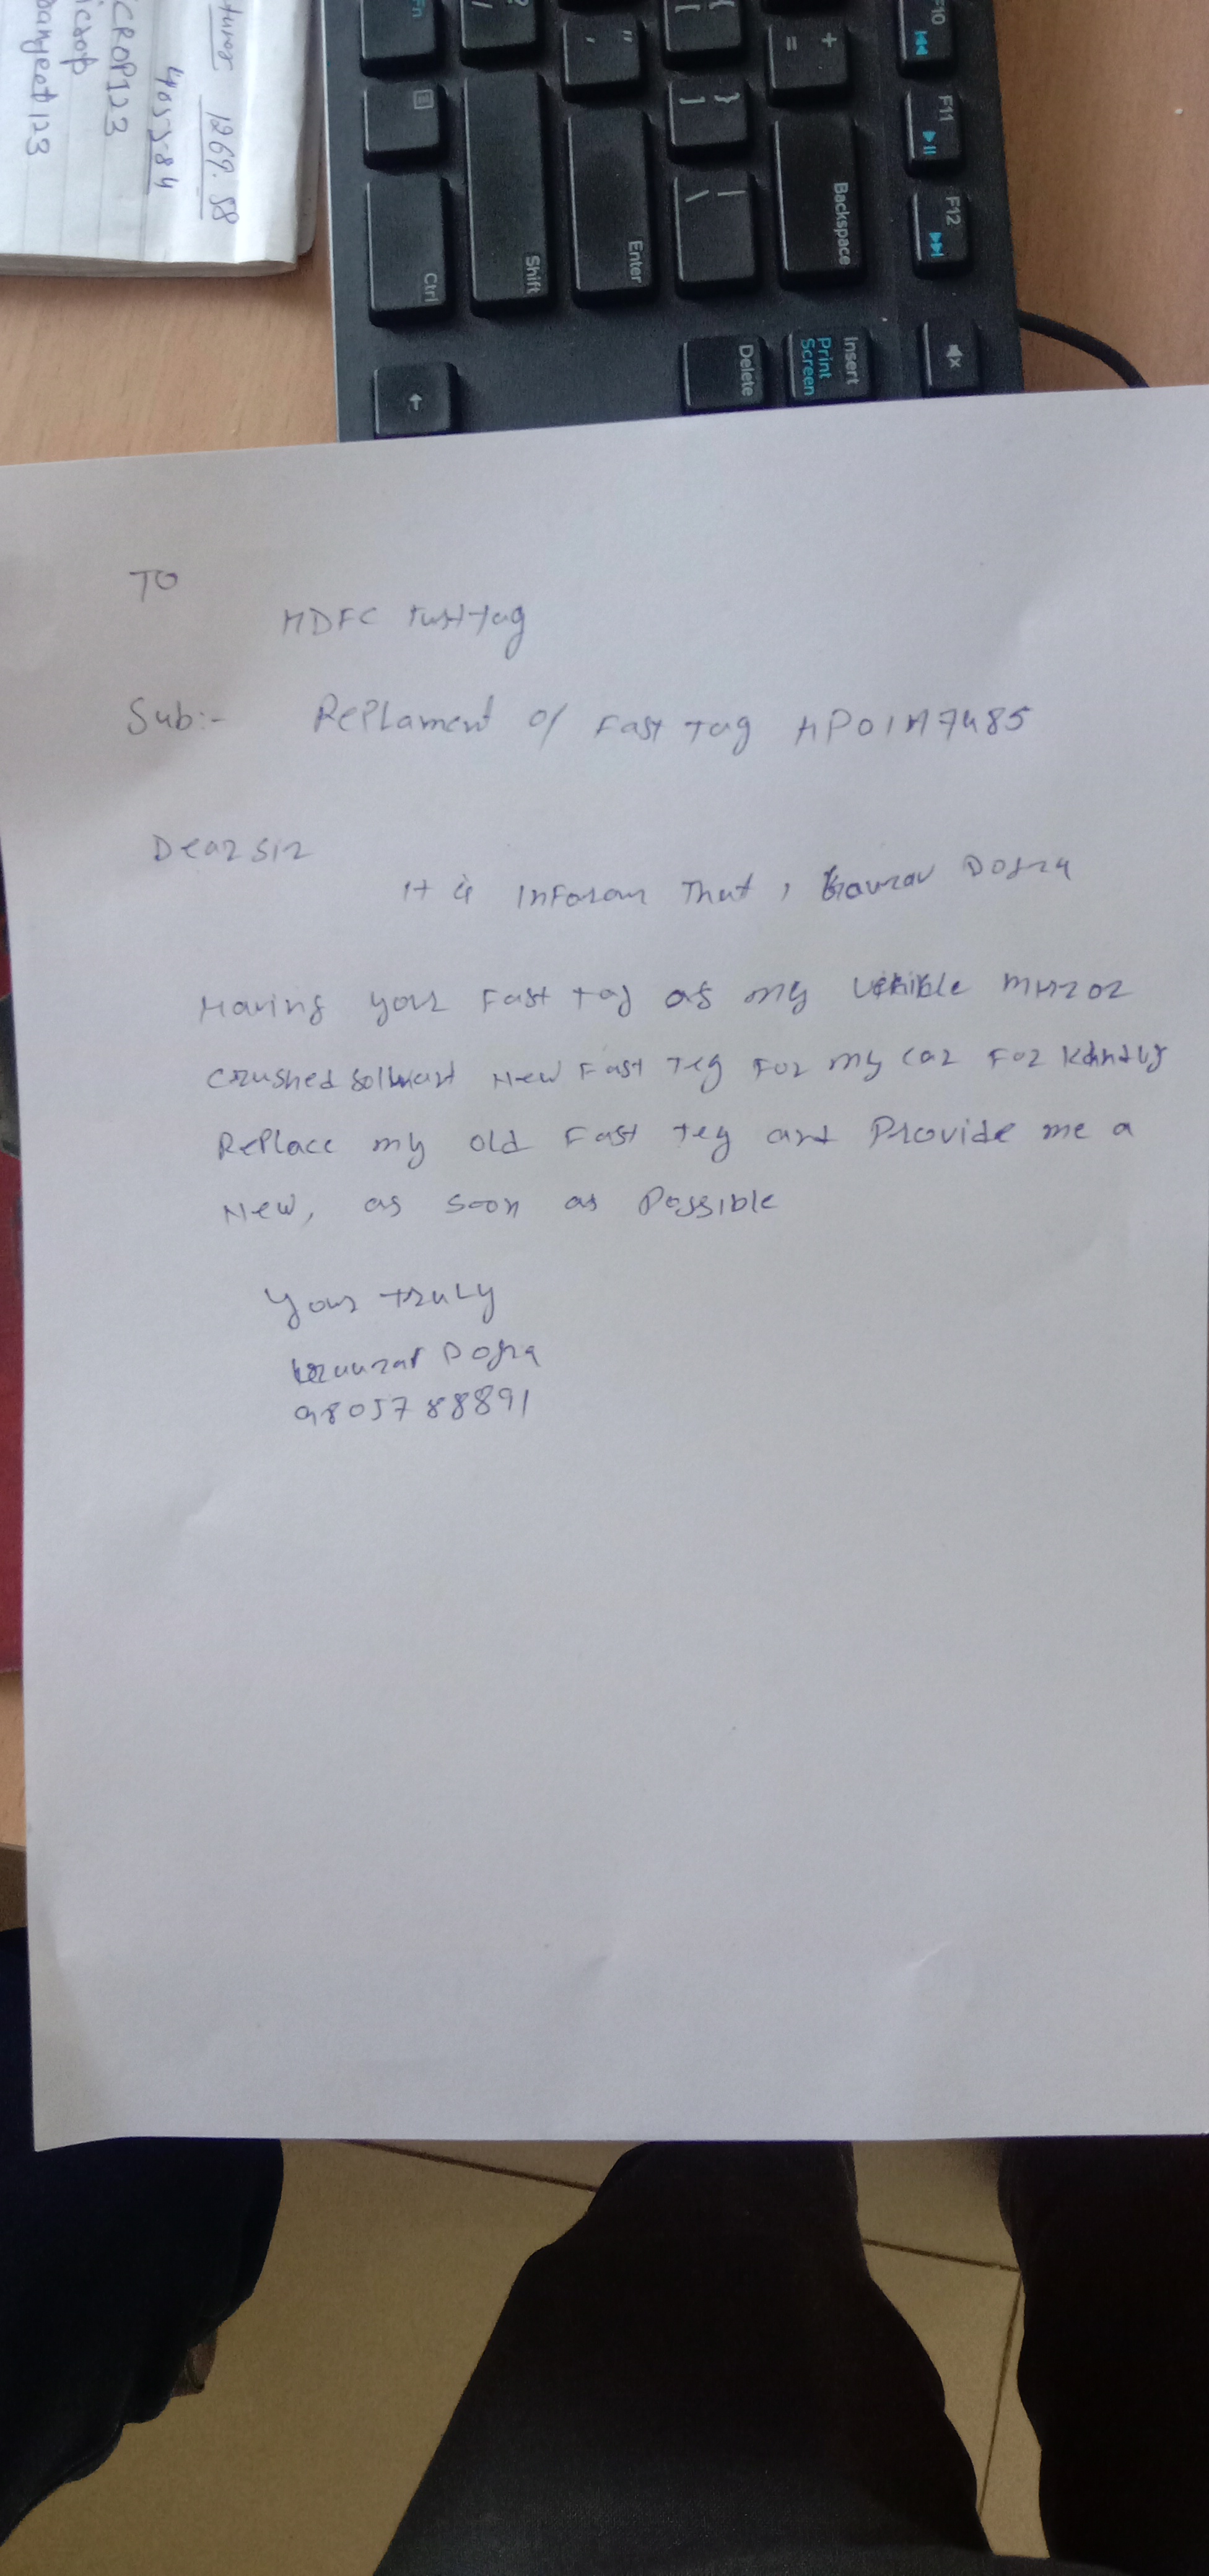 tures 1269.58
405384
ICROP123
icrop
banjeet123
Fn
?
/
"
'
{
[
+
=
F10
}
]
F11
Shift
Enter
|
\
Backspace
F12
Ctrl
Delete
Insert
Print
Screen
TO
HDFC fasttag
Sub:- RePlament of Fast Tag HP01A7485
Dear sir
It is Inforam That, Gaurav Dogra
Having your Fast tag as my vehible mirror
crushed so I want New Fast Teg For my car For kindly
RePlace my old Fast Teg and Provide me a
New, as soon as Possible
Your truly
Gaurav Dogra
9805788891